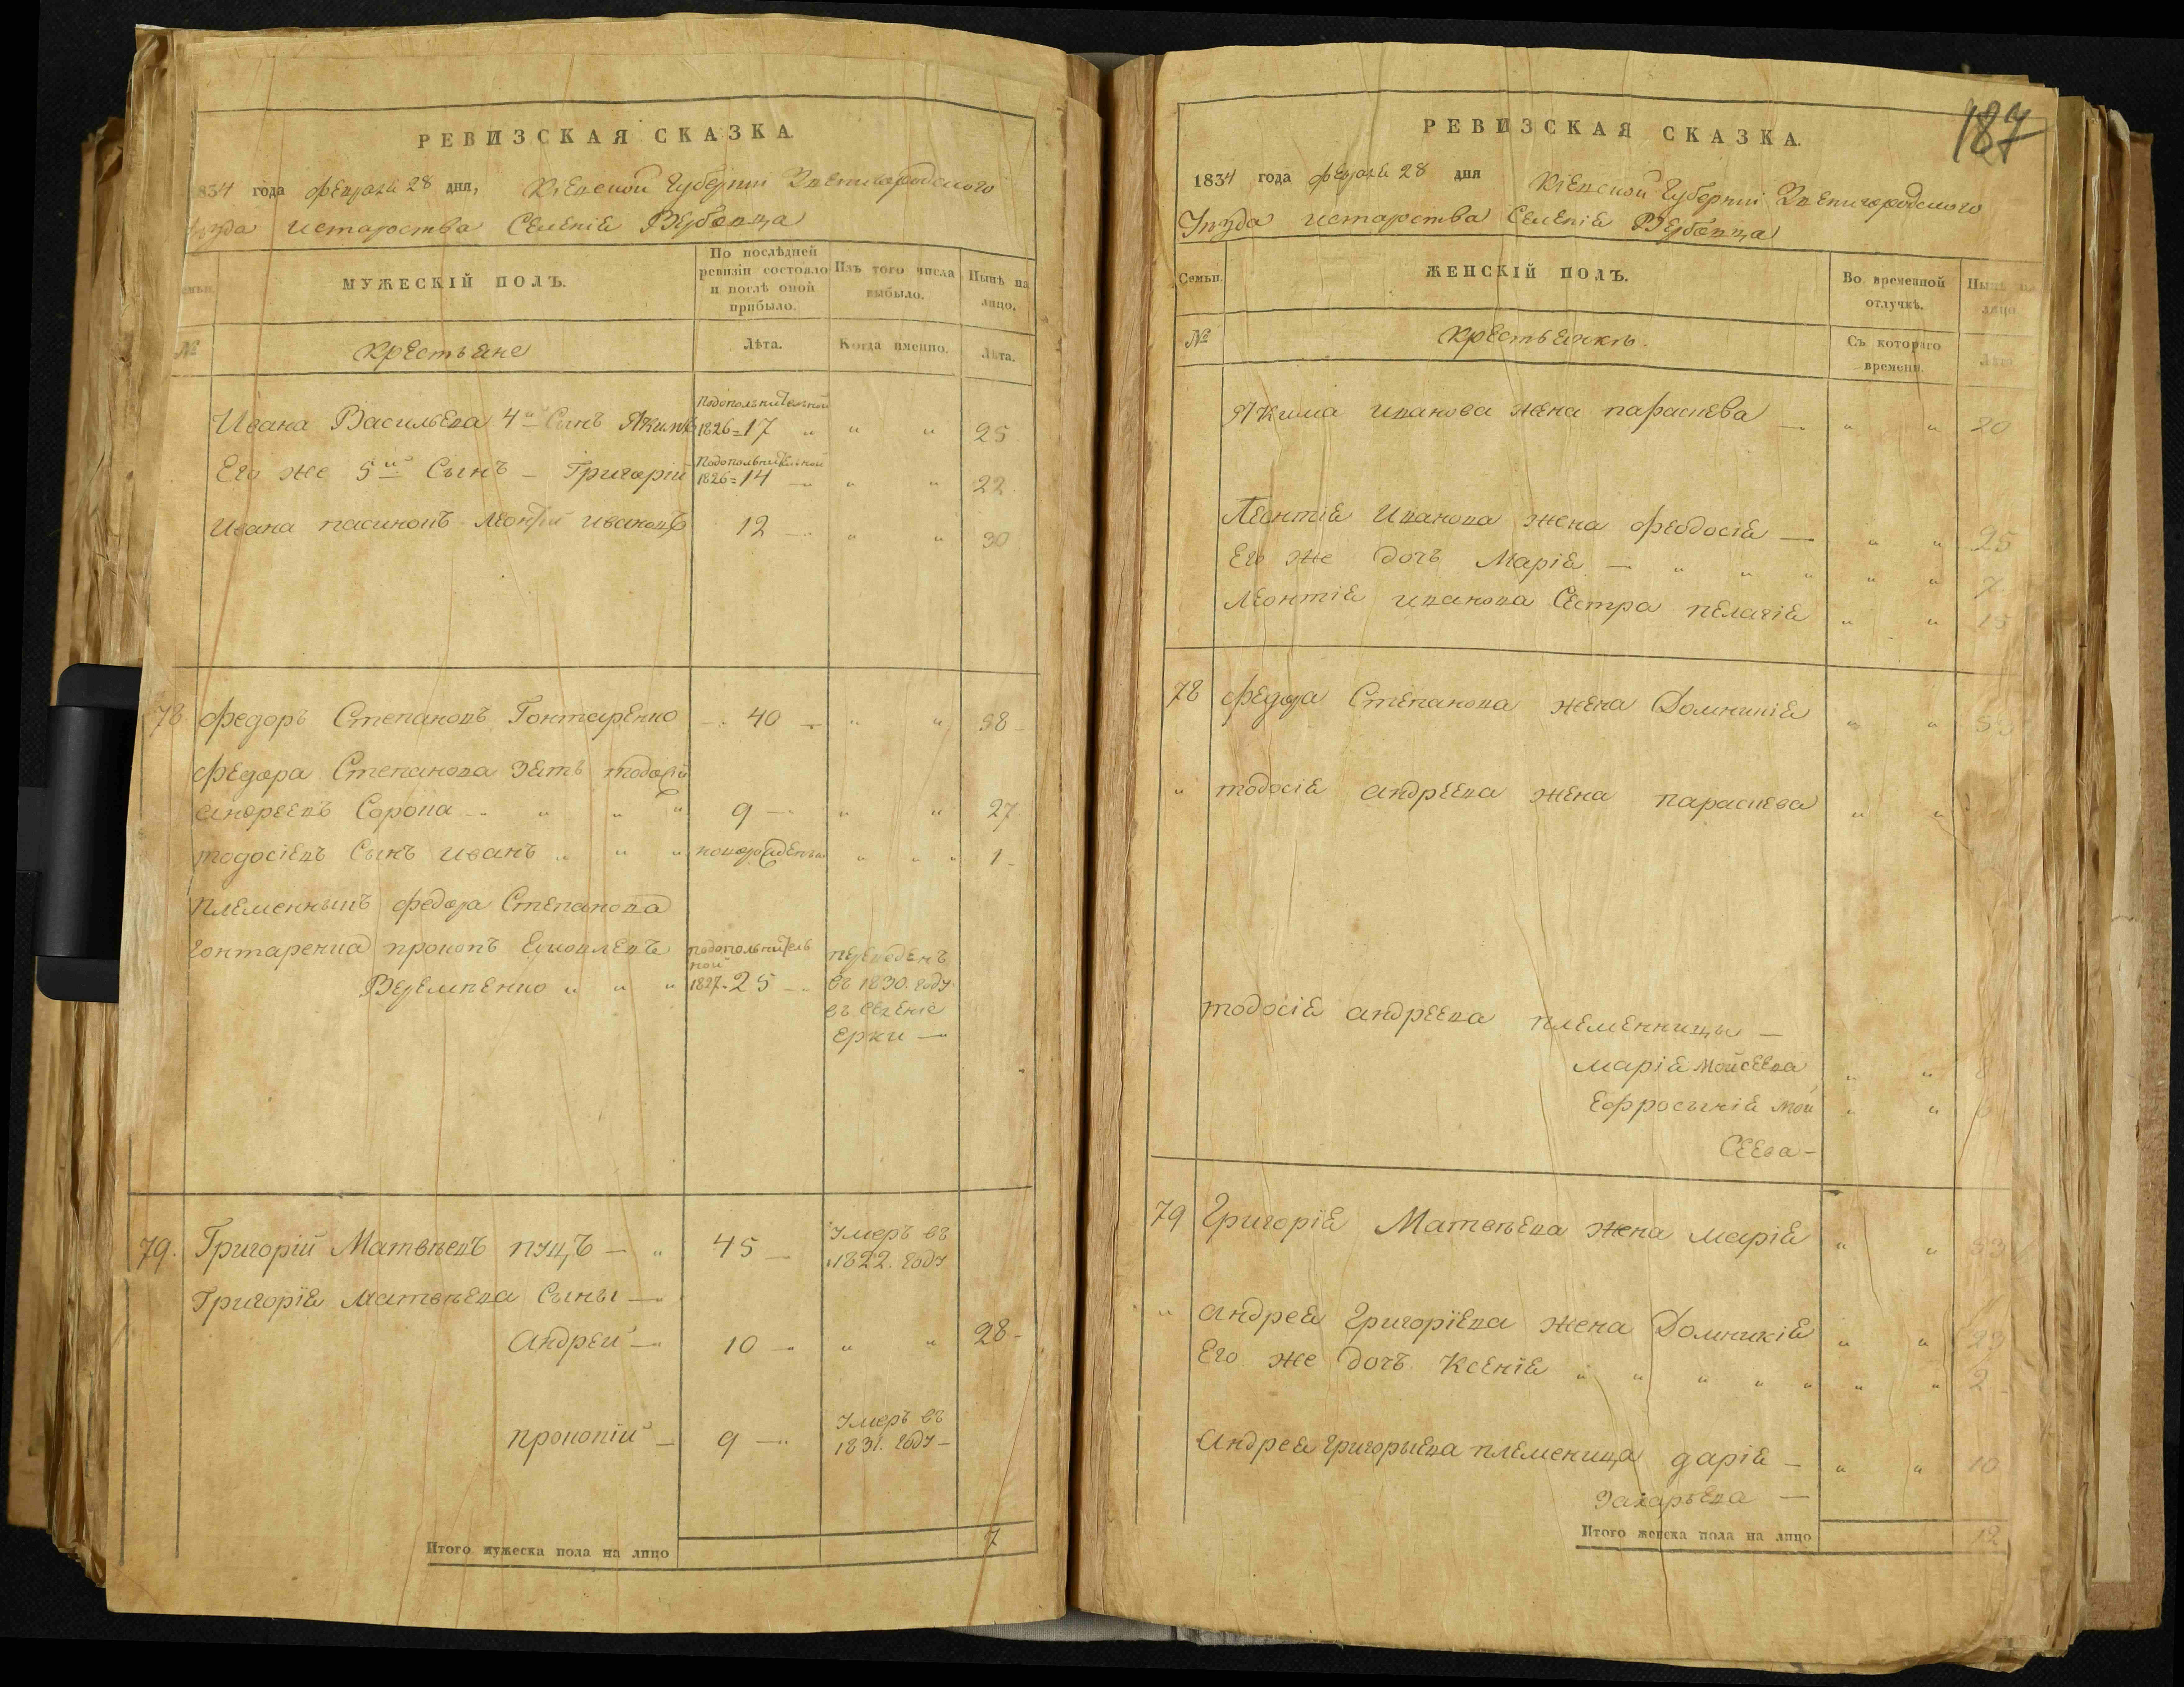 РЕВИЗСКАЯ СКАЗКА.
834 года февраля 28 дня, Кіевской Губерніи Звенигородского
уѣзда истароства Селеніе Вербовца
МУЖЕСКІЙ ПОЛЪ.
По послѣдней ревизіи состояло и послѣ оной прибыло.
Изъ того числа выбыло.
Нынѣ на лицо.
№
Крестьяне
Лѣта.
Когда именно.
Лѣта.
Ивана Васильева 4й Сынъ Якимъ подополнительной 1826=17 „ „ „ 25
Его же 5й Сынъ – Григорій подополнительной 1826=14 — „ „ 22
Ивана пасинокъ Леонтій Ивановъ 12 — „ „ 30
78 Федоръ Степановъ Гонтаренко — 40 — „ „ 58 –
Федора Степанова зять тодосій
андреевъ Сорока „ „ „ 9 — „ „ 27
тодосіевъ Сынъ Иванъ „ „ „ новорожденъ „ „ „ 1 –
племенныкъ федора Степанова
гонтаренка прокопъ Яковлевъ подополнитель
ной перев­еденъ
Веремѣенко „ „ „ 1827=25 — въ 1830. году
въ Селеніе
Ерки —
79. Григорій Матвѣевъ пуцъ — „ 45 — Умеръ въ
1822. году
Григорія Матвѣева Сыны —
Андрей — 10 — „ „ 28 –
прокопій — 9 — Умеръ въ
1831. году –
Итого мужеска пола на лицо 7
187
РЕВИЗСКАЯ СКАЗКА.
1834 года февраля 28 дня Кіевской Губерніи Звенигородского
Уѣзда истароства Селеніе Вербовца
Семьи.
ЖЕНСКІЙ ПОЛЪ.
Во временной отлучкѣ.
Нынѣ на лицо
№
Крестьянкѣ.
Съ котораго времени.
Лѣта
Якима иванова жена параскева — „ „ 20
Леонтія Иванова жена феодосія — „ „ 25
Его же дочъ Марія — „ „ „ „ „ 7
Леонтія иванова Сестра пелагія „ „ 15
78 Федора Степанова жена Домникія „ „
„ тодосія андреева жена параскева „ „
тодосія андреева племенницы —
марія мойсеева „ „
Ефросынія мой „ „
сеева –
79 Григорія Матвѣева жена марія „ „ 53
„ андрея Григоріева жена Домникія „ „ 23
Его же дочъ Ксенія „ „ „ „ „ „ „ 2
андрея григорыева племеница дарія — „ „ 10
Захарьева —
Итого женска пола на лицо 12